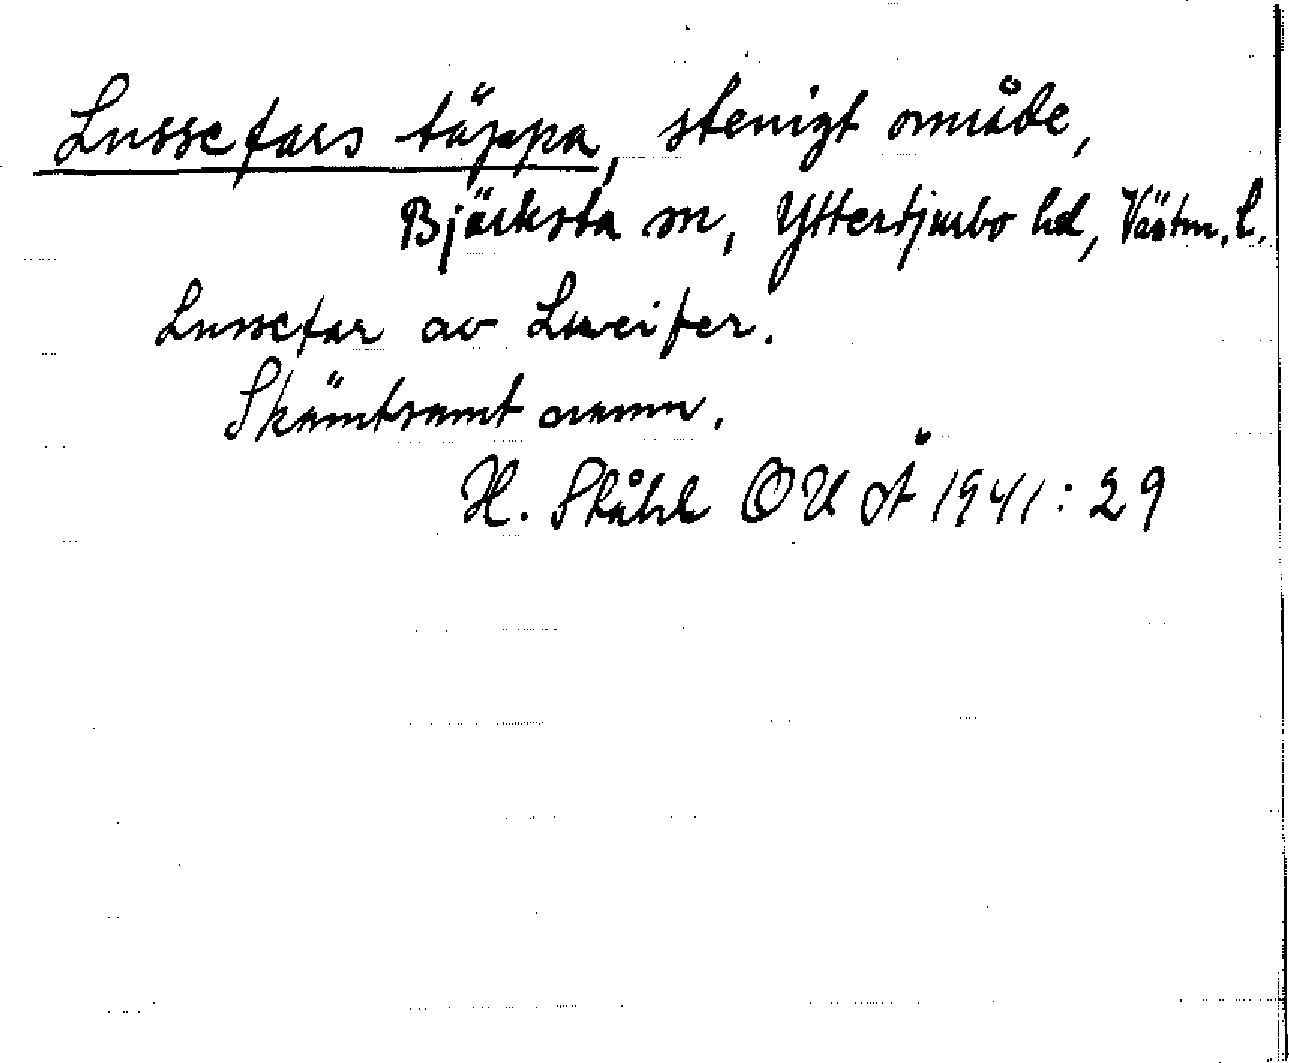 Lussefars täppa, stenigt område,
Björksta sn, Yttertjurbo hd, Västm. l.
Lussefar av Lucifer.
Skämtsamt namn.
H. Ståhl OUÅ 1941:29